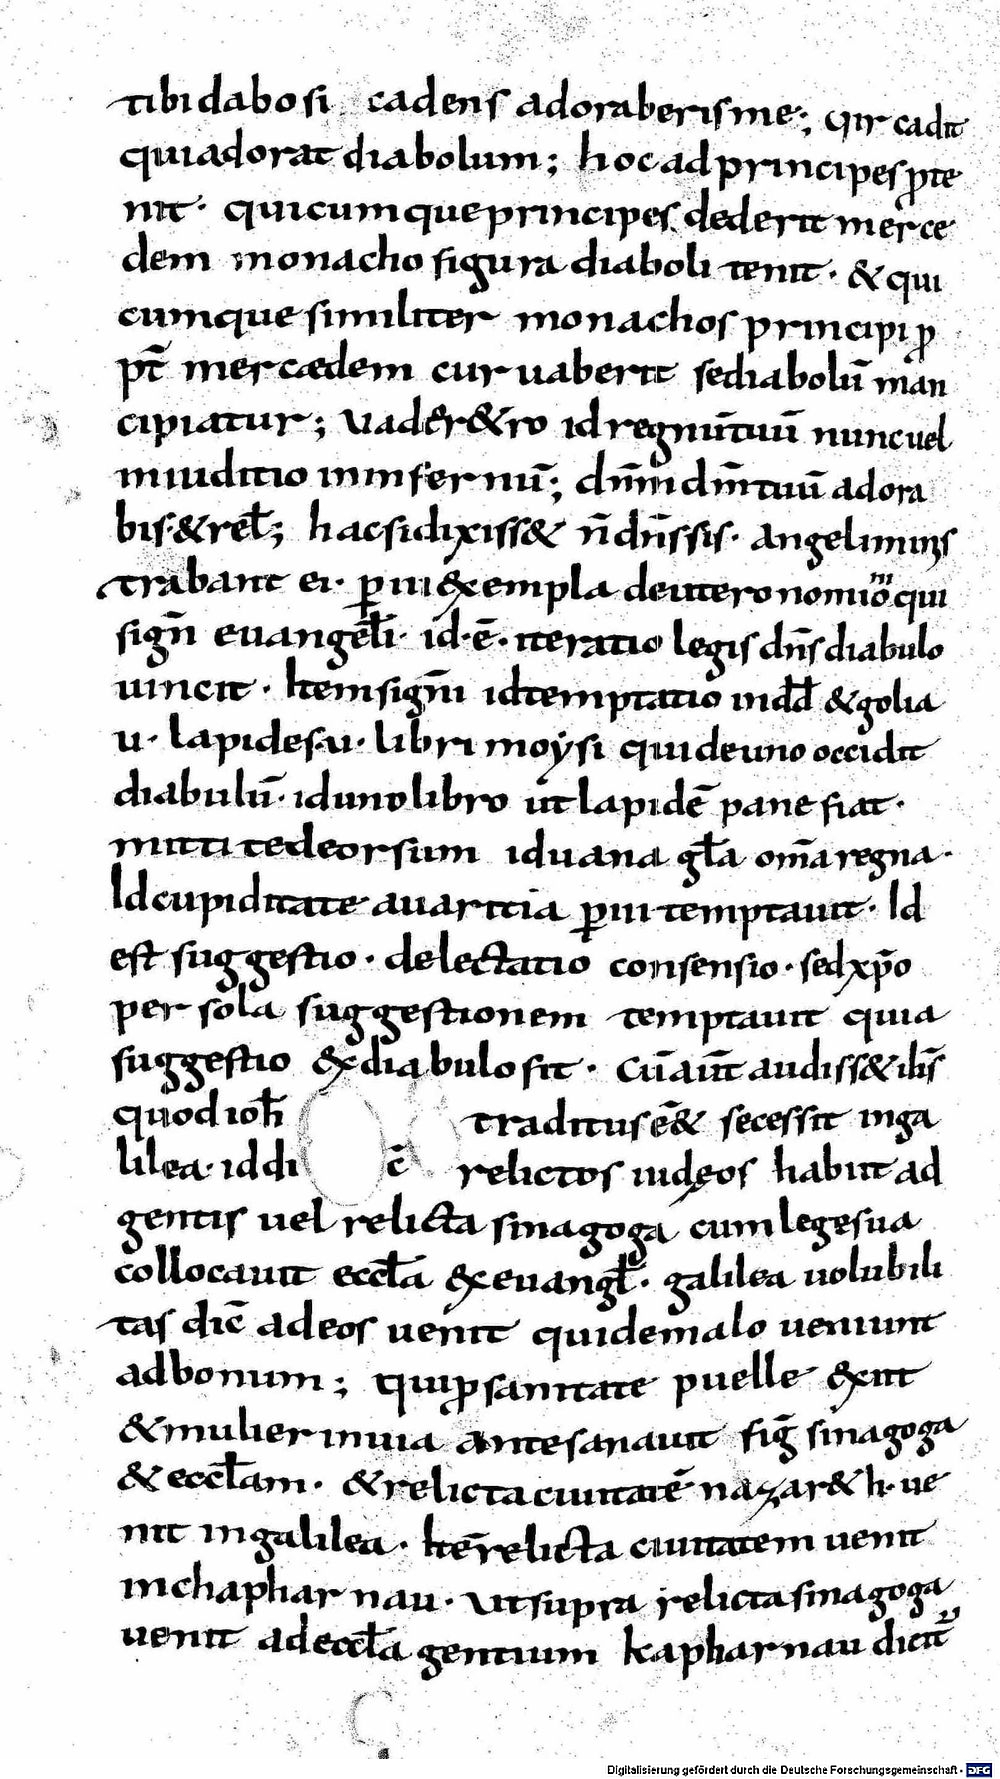 tibi dabo si cadens adoraberis me; Qir cadit
qui adorat diabolum; hoc ad principes ꝑte
nit· quicumque principes dederit merce
dem monacho figura diaboli tenit· & qui
cumque similiter monachos principi ꝓ
pt̄ mercædem curuaberit se diabolū man
cipiatur; Vade r&ro id regnū tuū nunc uel
in iuditio in infernū; dn̄m dm̄ tuū adora
bis·& rel̄; hac si dixiss& n̄ dn̄s sis· angeli minis
trabant ei· ꝑ iii exempla deuteronomio qui
sign̄ euangel̄i· id·ē· iteratio legis dn̄s diabulo
uincit· Item sign̄i id temptatio in dd̄ & golia
u· lapides·u· libri moysi qui de uno occidit
diabulū· id uno libro ut lapidē pane fiat·
mitti te deorsum id uana gl̄a om̄a regna·
Id cupiditate auaritia ꝑ iii temptauit· Id
est suggestio· delectatio consensio· sed xp̄o
per sola suggestionem temptauit quia
suggestio ex diabulo fit· Cū aūt audiss& ih̄s
quod ioh̄ traditus ē & secessit in ga
lilea· id di c̄ relictos iudęos habiit ad
gentis uel relicta sinagoga cum lege sua
collocauit eccl̄a ex euangl̄· galilea uolubili
tas dic̄ ad eos uenit qui de malo ueniunt
ad bonum; qui ꝓ sanitate puelle exiit
& mulier in uia ante sanauit fiḡ sinagoga
& eccl̄am· & relicta ciuitatē nazar&h· ue
nit in galilea· Itē relicta ciuitatem uenit
in chapharnau· ut supra relicta sinagoga
uenit ad eccl̄a gentium kapharnau dicit᷑
Digitalisierung gefördert durch die Deutsche Forschungsgemeinschaft - DFG